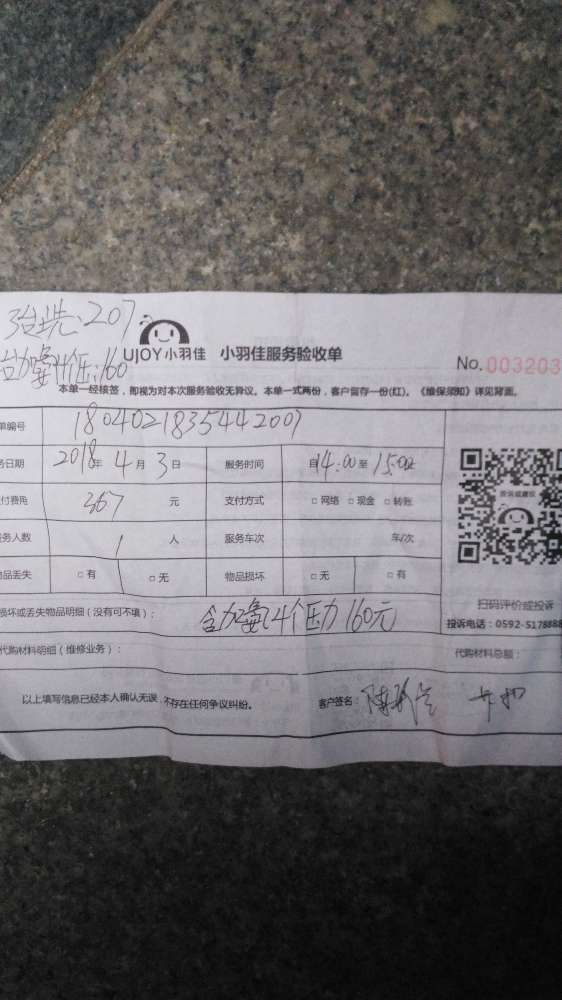 3台洗:207
UJOY小羽佳 小羽佳服务验收单
No.003203
本单一经核签,即视为对本次服务验收无异议。本单一式两份,客户留存一份(红)。《维保须知》详见背面。
单编号 1804021835442007
务日期 2018年 4月 3日 服务时间 自14:00至15:00
付费用 367 元 支付方式 □网络 □现金 □转账
务人数 1 人 服务车次 车/次
品丢失 □有 □无 物品损坏 □无 □有
损坏或丢失物品明细(没有可不填): 4个压力160元
代购材料明细(维修业务): 代购材料总额:
扫码评价或投诉
投诉电话:0592-5178888
以上填写信息已经本人确认无误,不存在任何争议纠纷。 客户签名: